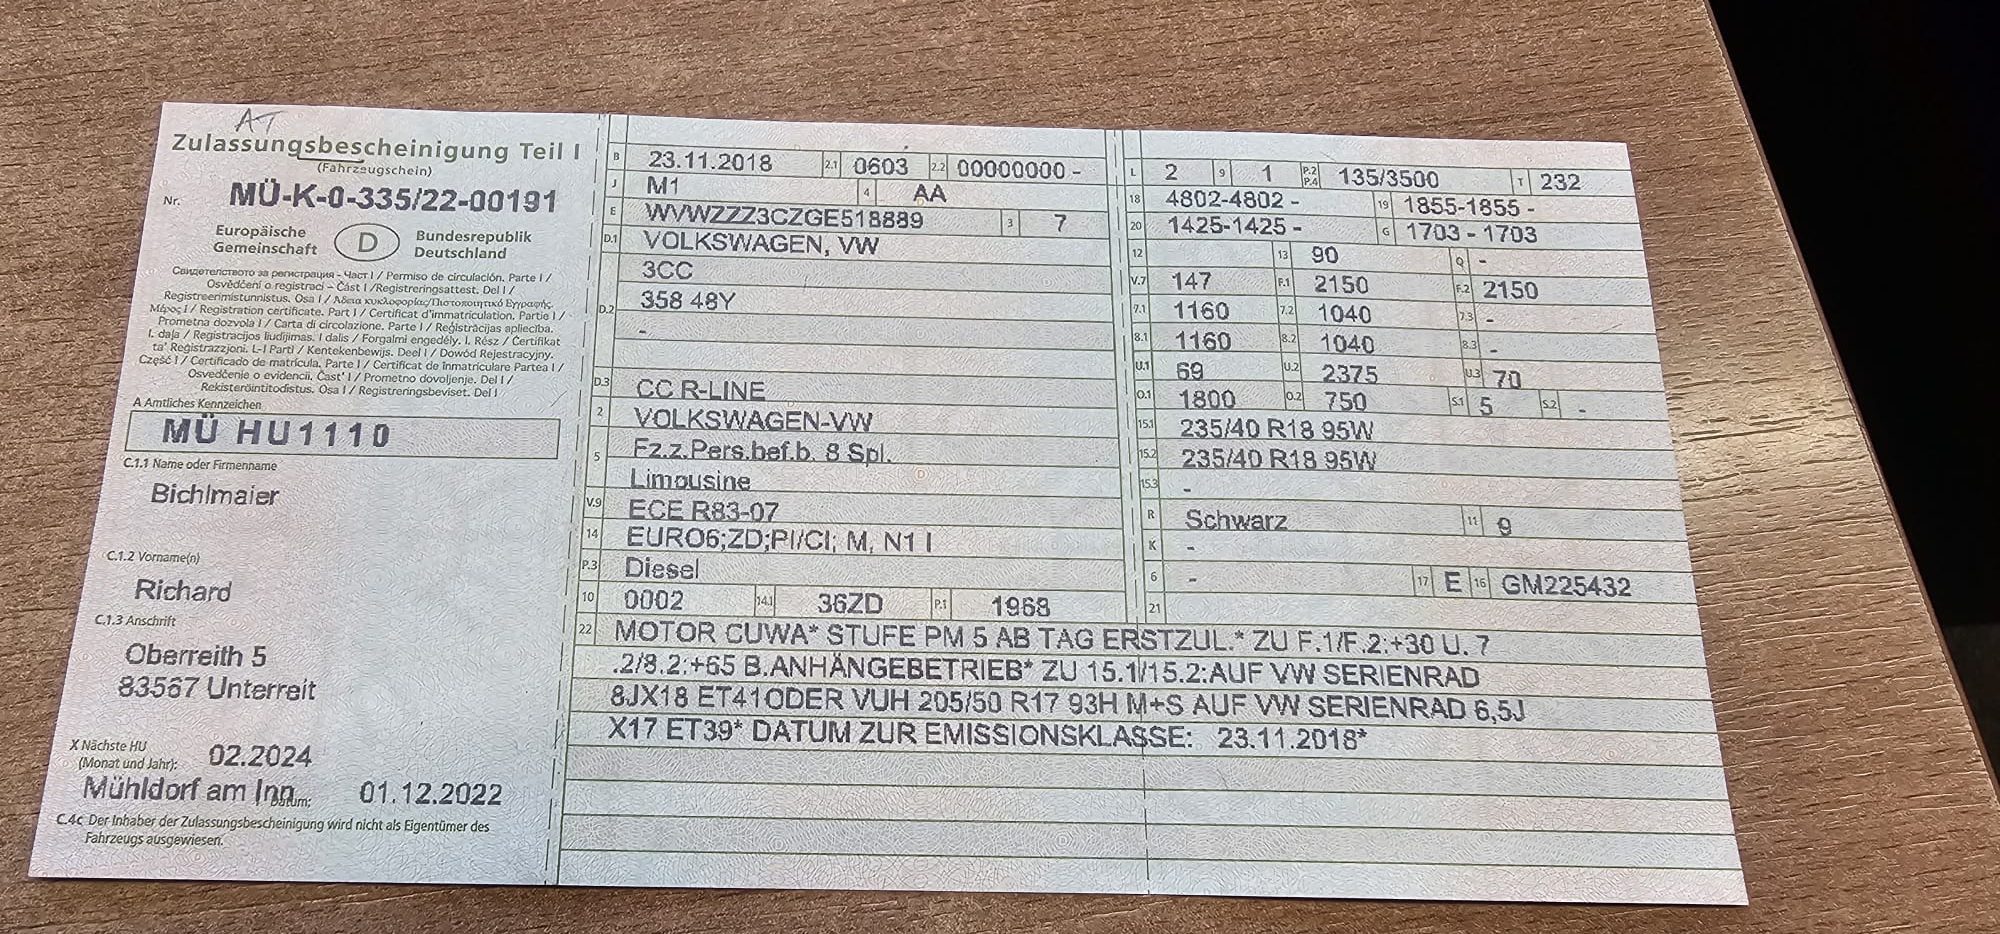 AT
Zulassungsbescheinigung Teil I
(Fahrzeugschein)
Nr. MÜ-K-0-335/22-00191
Europäische Gemeinschaft D Bundesrepublik Deutschland
Свидетелството за регистрация - Част I / Permiso de circulación. Parte I /
Osvědčení o registraci – Část I / Registreringsattest. Del I /
Registreerimistunnistus. Osa I / Άδεια κυκλοφορίας/Πιστοποιητικό Εγγραφής.
Μέρος I / Registration certificate. Part I / Certificat d'immatriculation. Partie I /
Prometna dozvola I / Carta di circolazione. Parte I / Reģistrācijas apliecība.
I. daļa / Registracijos liudijimas. I dalis / Forgalmi engedély. I. Rész / Ċertifikat
ta' Reġistrazzjoni. L-I Parti / Kentekenbewijs. Deel I / Dowód Rejestracyjny.
Część I / Certificado de matrícula. Parte I / Certificat de înmatriculare Partea I /
Osvedčenie o evidencii. Časť I / Prometno dovoljenje. Del I /
Rekisteröintitodistus. Osa I / Registreringsbeviset. Del I
A Amtliches Kennzeichen
MÜ HU1110
C.1.1 Name oder Firmenname
Bichlmaier
C.1.2 Vorname(n)
Richard
C.1.3 Anschrift
Oberreith 5
83567 Unterreit
X Nächste HU
(Monat und Jahr): 02.2024
Mühldorf am Inn Datum: 01.12.2022
C.4c Der Inhaber der Zulassungsbescheinigung wird nicht als Eigentümer des
Fahrzeugs ausgewiesen.
B 23.11.2018 2.1 0603 2.2 00000000 -
J M1 4 AA
E WVWZZZ3CZGE518889 3 7
D.1 VOLKSWAGEN, VW
3CC
D.2 358 48Y
-
D.3 CC R-LINE
2 VOLKSWAGEN-VW
5 Fz.z.Pers.bef.b. 8 Spl.
Limousine
V.9 ECE R83-07
14 EURO6;ZD;PI/CI; M, N1 I
P.3 Diesel
10 0002 14.1 36ZD P.1 1968
L 2 9 1 P.2 P.4 135/3500 T 232
18 4802-4802 - 19 1855-1855 -
20 1425-1425 - G 1703 - 1703
12 13 90 Q -
V.7 147 F.1 2150 F.2 2150
7.1 1160 7.2 1040 7.3 -
8.1 1160 8.2 1040 8.3 -
U.1 69 U.2 2375 U.3 70
O.1 1800 O.2 750 S.1 5 S.2 -
15.1 235/40 R18 95W
15.2 235/40 R18 95W
15.3 -
R Schwarz 11 9
K -
6 - 17 E 16 GM225432
21
22 MOTOR CUWA* STUFE PM 5 AB TAG ERSTZUL.* ZU F.1/F.2:+30 U. 7
.2/8.2:+65 B.ANHÄNGEBETRIEB* ZU 15.1/15.2:AUF VW SERIENRAD
8JX18 ET41ODER VUH 205/50 R17 93H M+S AUF VW SERIENRAD 6,5J
X17 ET39* DATUM ZUR EMISSIONSKLASSE: 23.11.2018*